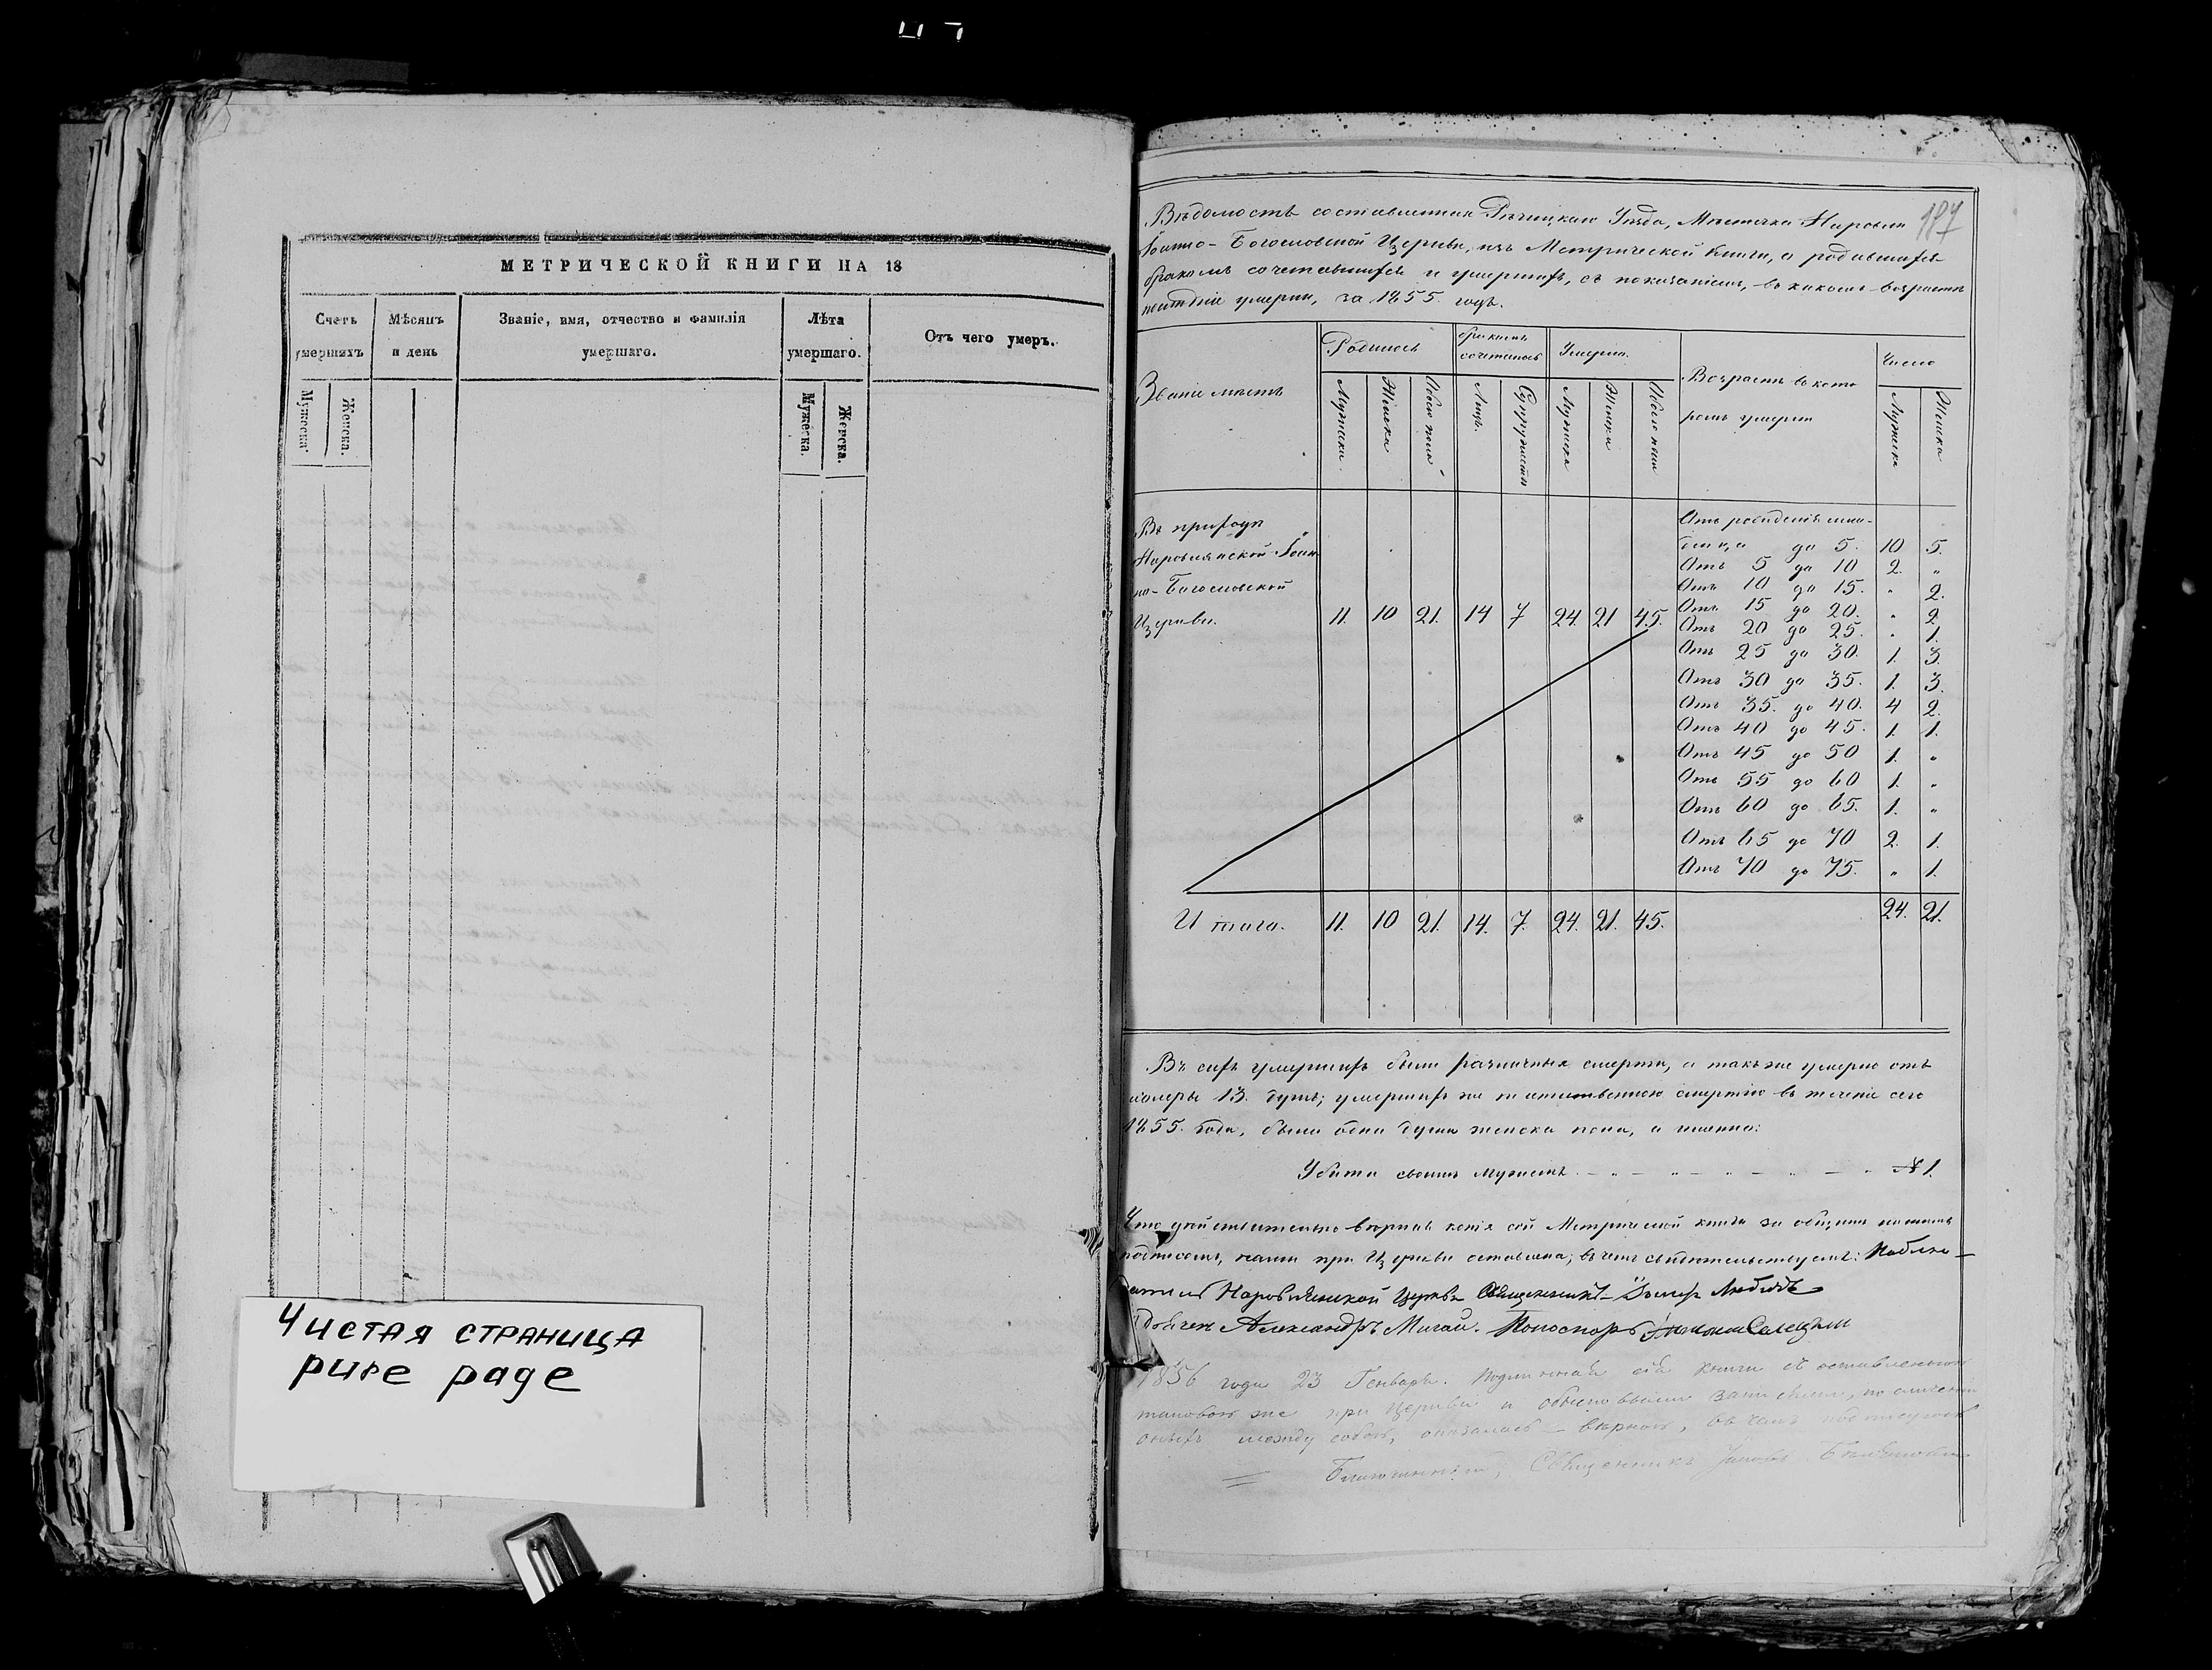 МЕТРИЧЕСКОЙ КНИГИ НА 18
Счетъ умершихъ
Мѣсяцъ и день
Званіе, имя, отчество и фамилія умершаго.
Лѣта умершаго.
Отъ чего умеръ.
Мужеска
Женска.
Мужеска.
Женска.
Чистая страница
pure page
187
Вѣдомость составленная Рѣчицкаго Уѣзда, Мѣстечка Наровли
Іоанно-Богословской Церкви, изъ Метрической Книги, о родившихся
бракомъ сочетавшихся и умершихъ, съ показаніемъ, въ какомъ возрастѣ
умерли, за 1855 годъ.
Званіе мѣстъ
Родилось
бракомъ сочеталось
Умерло.
Возрастъ въ кото
ромъ умерли
Число
Мужска.
Женска
Обоего пола
Лицъ.
Супружествъ
Мужска
Женска
Обоего пола
Мужска
Женска
Въ приходѣ
Наровлянской Іоан
но-Богословской
Церкви. 11. 10 21. 14 7 24. 21 45.
Отъ рожденія мла-
денца до 5. 10 5.
Отъ 5 до 10 2. "
Отъ 10 до 15. " 2.
Отъ 15 до 20. " 2.
Отъ 20 до 25. " 1.
Отъ 25 до 30. 1. 3.
Отъ 30 до 35. 1. 3.
Отъ 35. до 40. 4 2.
Отъ 40 до 45. 1. 1.
Отъ 45 до 50 1. "
Отъ 55 до 60 1. "
Отъ 60 до 65. 1. "
Отъ 65 до 70 2. 1.
Отъ 70 до 75. " 1.
Итого. 11. 10 21. 14. 7. 24. 21. 45. 24. 21.
Въ сихъ умершихъ были различныя смерти, а также умерло отъ
холеры 13. душъ; умершихъ же смертію въ теченіе сего
1855. года, была одна душа женска пола, а именно:
Убита своимъ мужемъ - " - " - " - " - " № 1.
Что дѣйствительно вѣрная копія сей Метрической книги за общимъ нашимъ
подписомъ, нами при Церкви оставлена; въ чемъ свидѣтельствуемъ: Наблю-
датель Наровлянской Церкви Священникъ
Александръ Мигай. Пономарь
1856 года 23 Генваря. Подлинная сія книга съ оставленною
таковою же при Церкви и обыскными записями, по сличеніи
оныхъ между собою, оказалась вѣрною, въ чемъ подписуюсь
Благочинный, Священникъ